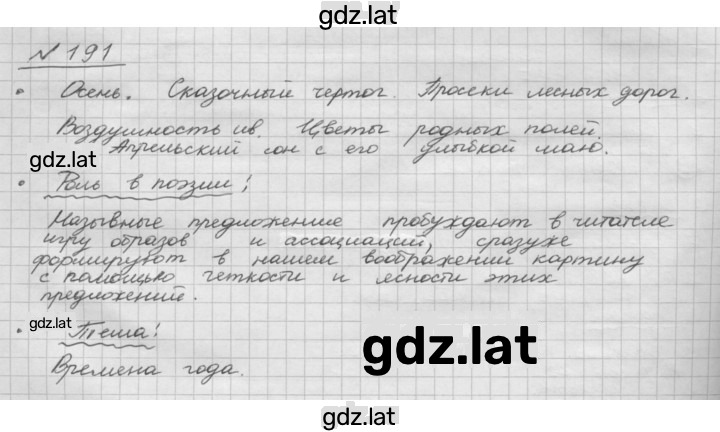 gdz.lat
№ 191
• Осень. Сказочный чертог. Просеки лесных дорог.
Воздушность ив. Цветы родных полей.
gdz.lat
Апрельский сон с его улыбкой маю.
• Роль в поэзии:
Назывные предложение пробуждают в читателе
игру образов и ассоциаций, сразу же
формируют в нашем воображении картину
с помощью четкости и ясности этих
предложений.
gdz.lat
• Тема:
gdz.lat
Времена года.
gdz.lat